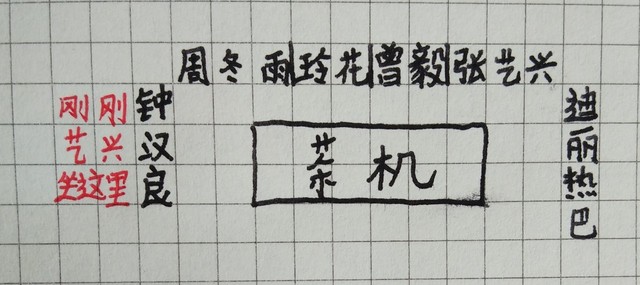 周冬雨|玲花|曾毅|张艺兴
刚刚
艺兴
坐这里
钟汉良
茶机
迪丽热巴